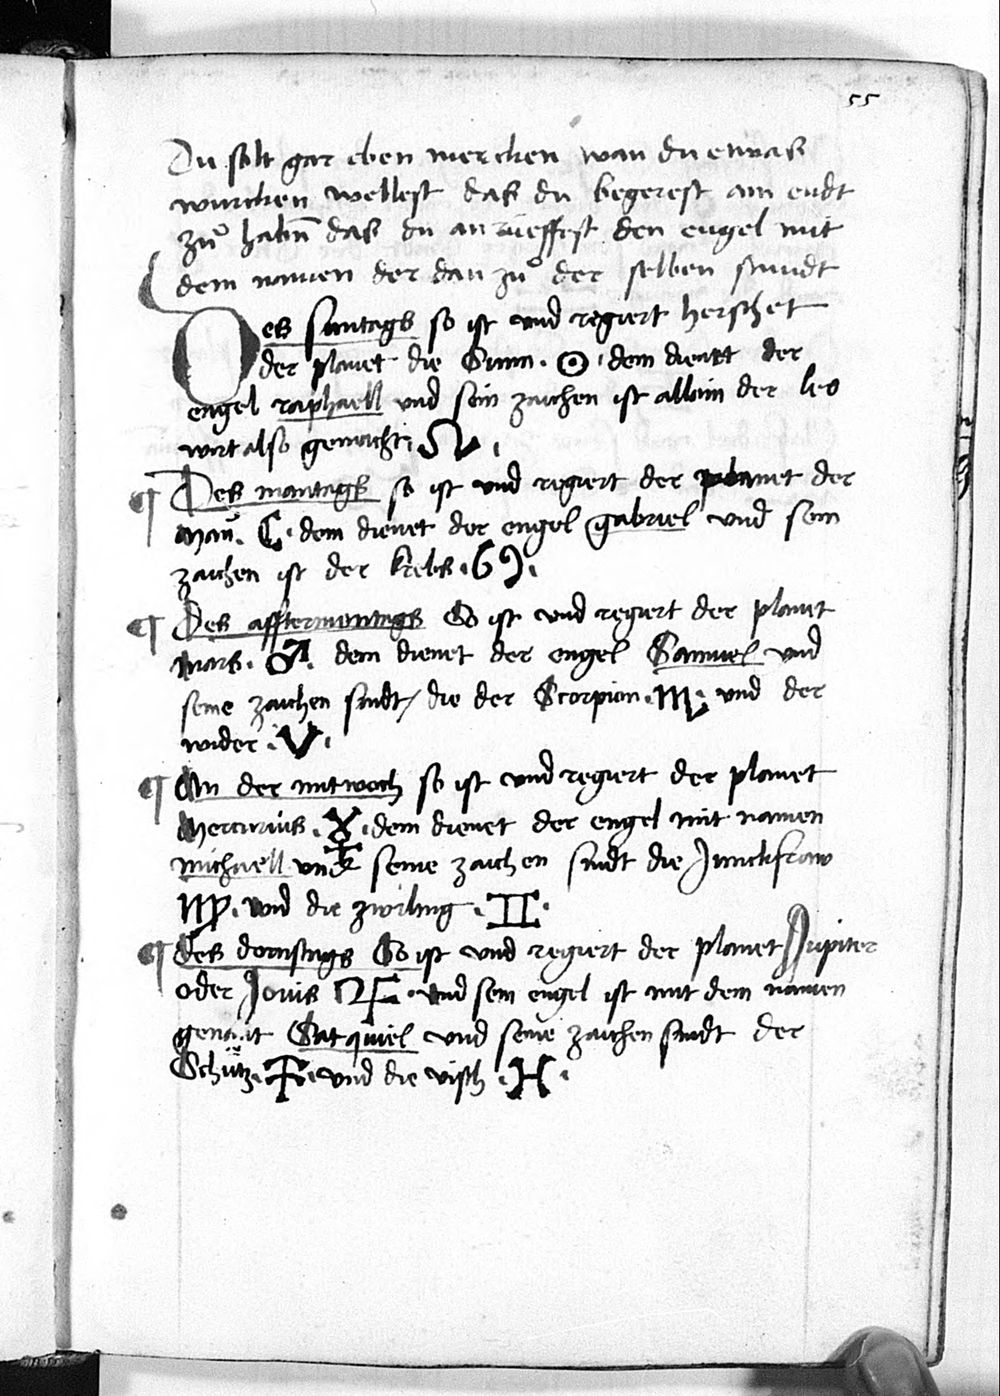 55
Du solt gar eben mercken wan du etwas
wurcken wellest das du begerest am endt
zuͦ habn̄ das du an rieffest den engel mit
dem namen der dan zuͦ der selben stundt
Des suntags so ist und regiert herschet
der planet die Sunn . ☉ . dem dienett der
engel raphaell und sein zaichen ist allain der leo
wirt also gemacht . ♌ .
¶ Des montags so ist und regiert der planet der
man̄ . ☾ . dem dienet der engel gabriel und sein
zaichen ist der krebs . ♋ .
¶ Des afftermontags So ist und regiert der planet
mars . ♂ . dem dienet der engel Samuel und
seine zaichen sindt / die der Scorpion . ♏ . und der
wider . ♈ .
¶ An der mitwoch so ist und regiert der planet
Mercurius . ☿ . dem dienet der engel mit namen
michaell und seine zaichen sindt die Junckfraw
♍ . und die zwiling . ♊ .
¶ Des dornstags So ist und regiert der planet Jupiter
oder Jovis ♃ . und sein engel ist mit dem namen
genant Satquiel und seine zaichen sindt der
Schütz . ♐ . und die visch . ♓ .